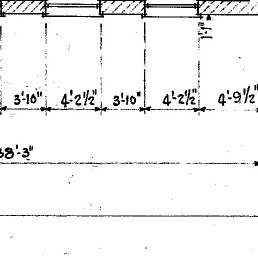 3'-10" 4'-2½" 3'-10" 4'-2½" 4'-9½"
38'-3"